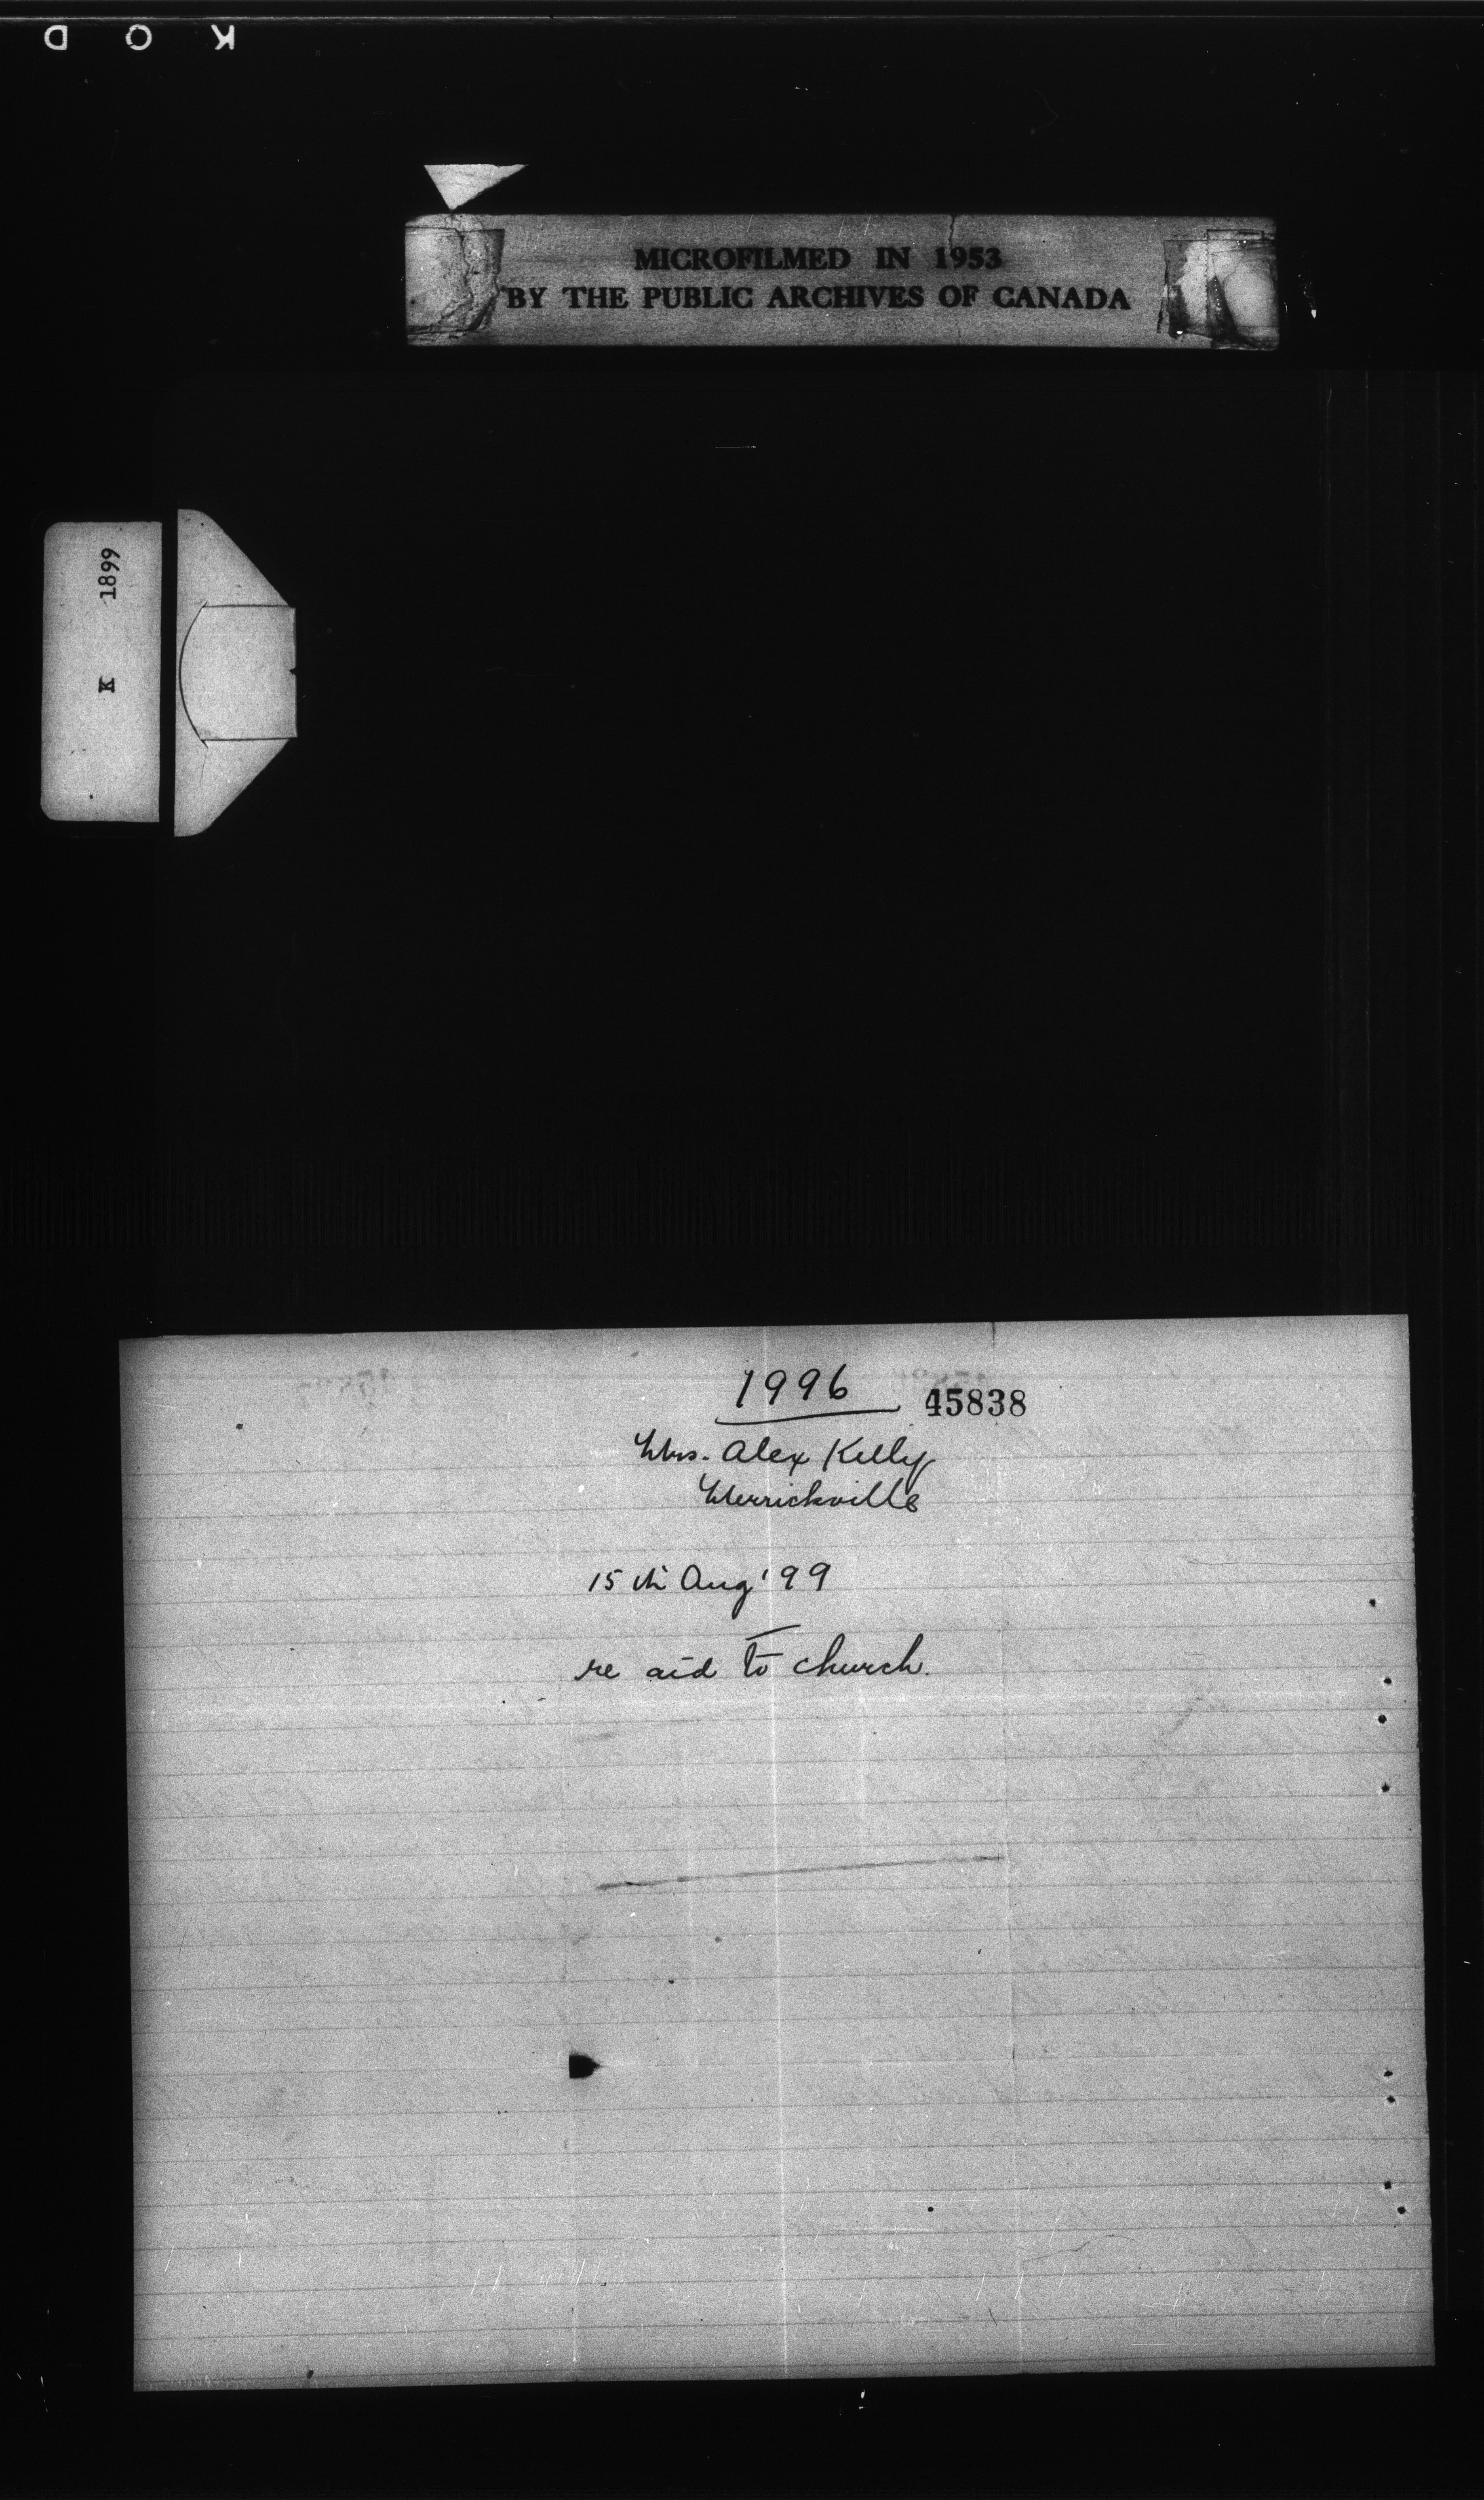 K O D
MICROFILMED IN 1953
BY THE PUBLIC ARCHIVES OF CANADA
K 1899
1996 45838
Mrs. Alex Kelly
Merrickville
15th Aug '99
re aid to church.